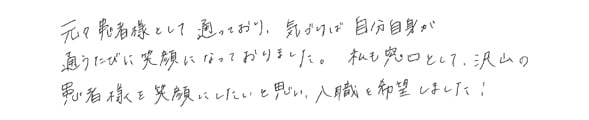 元々患者様として通っており、気づけば自分自身が
通うたびに笑顔になっておりました。私も窓口として、沢山の
患者様を笑顔にしたいと思い、入職を希望しました!